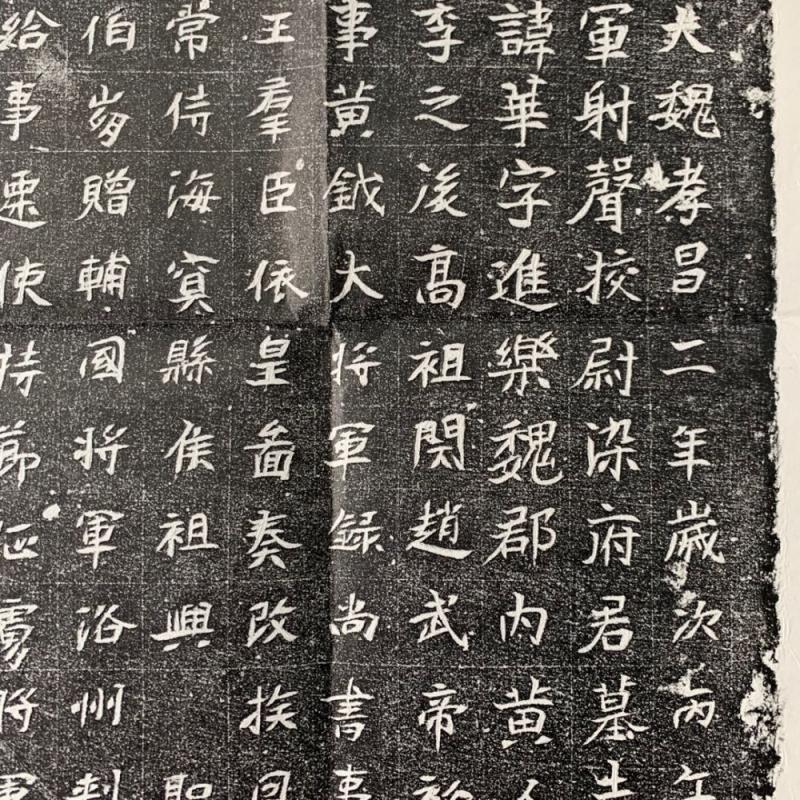 大魏孝昌二年歲次丙午
軍射聲挍尉染府君墓
諱華字進樂魏郡內黃人
季之後高祖閔趙武帝
事黃鉞大將軍錄尚書事
王羣臣依皇啚奏改挨
常侍海寘縣侯祖興
伯岁贈輔國將軍洛州刺
給事使持節征虜將軍